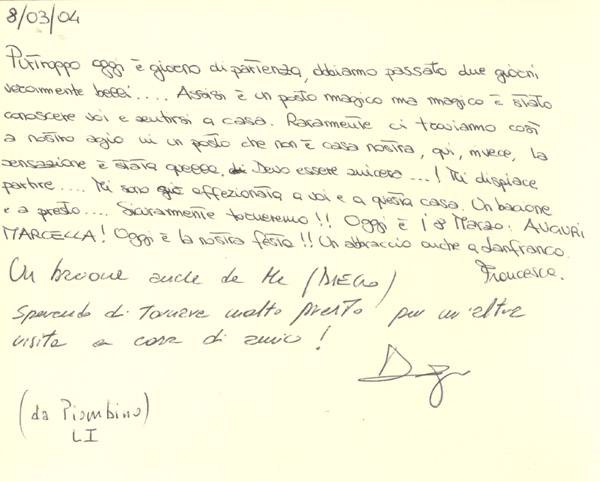 8/03/04
Purtroppo oggi è giorno di partenza, abbiamo passato due giorni
veramente belli.... Assisi è un posto magico ma magico è stato
conoscere voi e sentirsi a casa. Raramente ci troviamo così
a nostro agio in un posto che non è casa nostra, qui, invece, la
sensazione è stata quella, di Devo essere sincera...! Mi dispiace
partire.... Mi sono già affezionata a voi e a questa casa. Un bacione
e a presto.... Sicuramente torneremo!! Oggi è l'8 Marzo: AUGURI
MARCELLA! Oggi è la nostra festa!! Un abbraccio anche a Gianfranco.
Francesca.
Un bacione anche da Me (DIEGO)
Sperando di Tornare molto presto per un'altra
visita a casa di amici!
(da Piombino)
LI